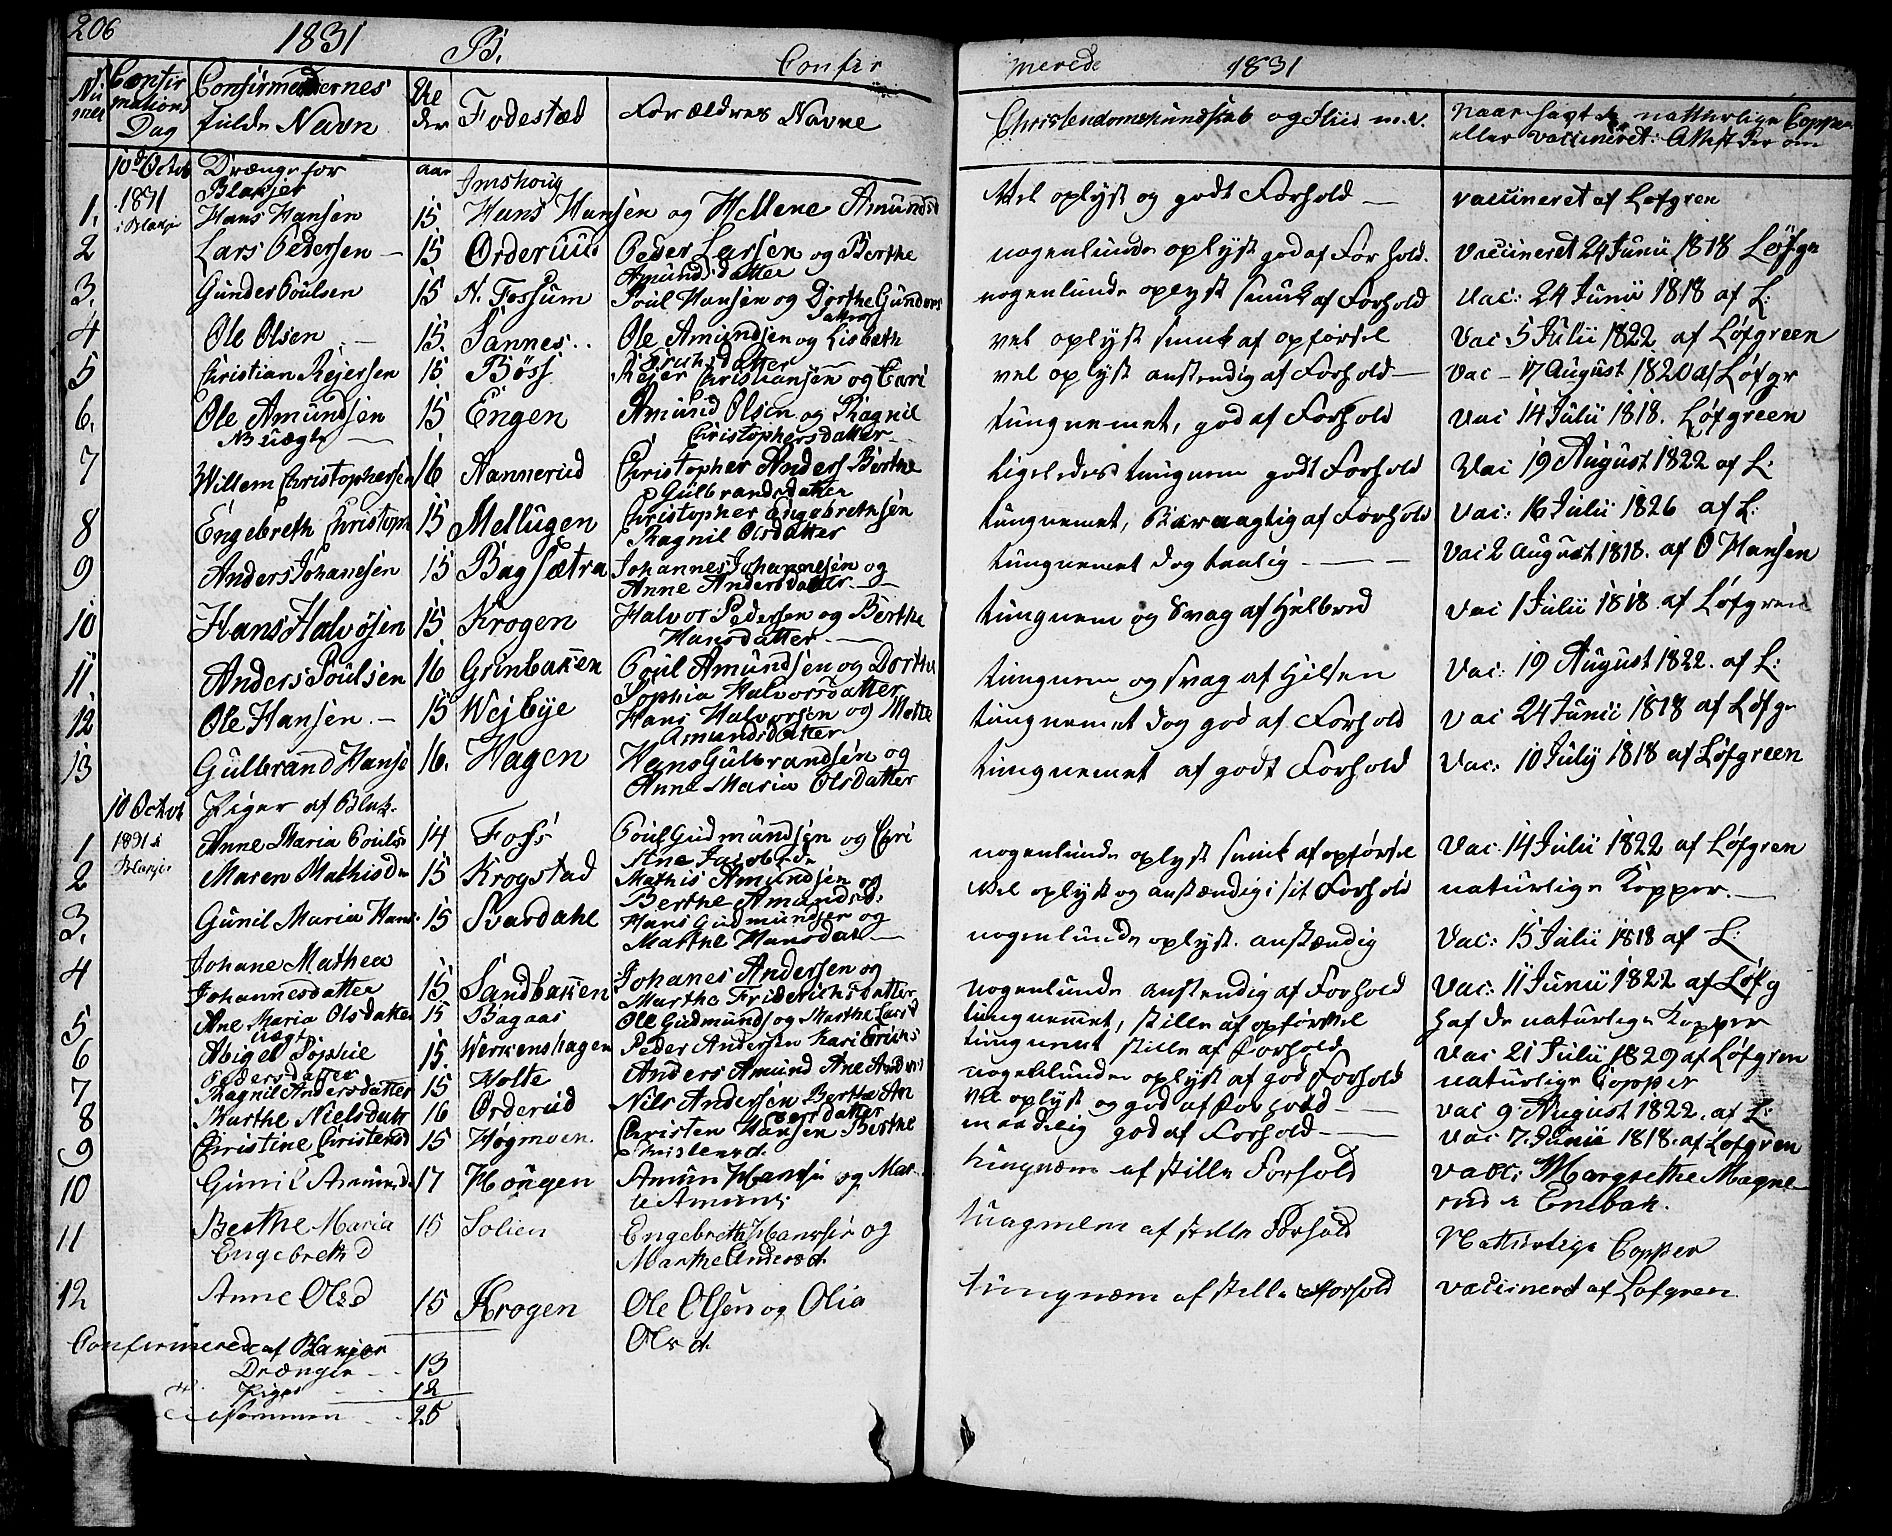 206 1831 B. Confir merede 1831
Nu mer Confirmations Dag Confirmandernes fulde Navn Alder Fødestæd Forældres Navne Christendomskundskab og Fliid m. v. Naar havt de naturlige Copper eller vaccineret: Attest der om
10de Octob 1831 i Blakjer Drænge for Blakjer aar
1. Hans Hansen 15 Imshoug Hans Hansen og Hellene Amundsd Vel oplyst og godt Forhold — vaccineret af Løfgren
2 Lars Pedersen — 15 Orderuud Peder Larsen og Berthe Amundsdatter nogenlunde oplyst god af Forhold. Vaccineret 24 Junii 1818 Løfgr
3. Gunder Poulsen 15 N. Fossum Poul Hansen og Dorthe Gunders datter nogenlunde oplyst smuk af Forhold Vac: 24 Junii 1818 af L:
4 Ole Olsen — 15. Sannes Ole Amundsen og Lisbeth Erichsdatter vel oplyst smuk af opførsel Vac 5 Julii 1822 af Løfgreen
5 Christian Rejersen 15 Böss Rejer Christiansen og Cari vel oplyst anstendig af Forhold — Vac — 17 August 1820 af Løfgr
6. Ole Amundsen NB uægte — 15 Engen Amund Olsen og Ragnil Christophersdatter tungnemet, god af Forhold Vac 14 Julii 1818. Løfgreen
7 Willem Christophersen 16 Nannerud Christopher Anders Berthe Gulbrandsdatter ligeledes tungnem godt Forhold Vac 19 August 1822 af L:
8 Engebreth Christoph 15 Mellugen Christopher Engebrethsen Ragnil Olsdatter tungnemet, af Forhold Vac: 16 Julii 1826 af L:
9 Anders Johanesen 15 Bagsætra Johannes Johannesen og Anne Andersdatter — tungnemet dog taalig — Vac 2 August 1818. af O Hansen
10 Hans Halvosen 15 Krogen Halvor Pedersen og Berthe Hansdatter — tungnem og svag af Helbred Vac 1 Julii 1818. af Løfgren
11 Anders Poulsen 16 Grinbakken Poul Amundsen og Dorthe Sophia Halvorsdatter tungnem og svag af Hilsen Vac: 19 August 1822. af L:
12 Ole Hansen — 15 Wejbye Hans Halvorsen og Mette Amundsdatter tungnemet dog god af Forhold Vac 24 Junii 1818 af Løfgr
13 Gulbrand Hanse 16. Hagen Hans Gulbrandsen og Anne Maria Olsdatter tungnemet af godt Forhold Vac: 10 July 1818 af Løfgreen
10 Octob 1831 i Blakjer Piger af Blak.
1 Anne Maria Pouls 14 Foss Poul Gudmundsen og nogenlunde oplyst smuk af opførsel Vac: 14 Julii 1822 af Løfgren
2 Maren Mathisd 15 Krogstad Mathis Amundsen og Berthe Amundsd. Vel oplyst og anstændig i sit Forhold naturlige Kopper. —
3. Gunil Maria Hans 15 Svardahl Hans Gudmundsen og Marthe Hansdat — nogenlunde oplyst. anstændig Vac: 15 Julii 1818 af L:
4 Johane Mathea Johannesdatter 15 Sandbakken Johanes Andersen og Marthe Friderichsdatter nogenlunde anstendig af Forhold Vac: 11 Junii 1822 af Løfg
5 Ane Maria Olsdatter uægt 15 Bagaas Ole Gudmunds og Marthe Larsd tungnemet, stille af opførsel Haf de naturlige Kopper
6 Abigel Sophie Pedersdatter 15. Werkenshagen Peder Andersen Kari Erichs tungnemt stille af Forhold Vac 21 Julii 1829 af Løfgren
7 Ragnil Andersdatter 15 Holte Anders Amund Ane Anders nogenlunde oplyst af god Forhold naturlige Copper
8 Marthe Nielsdatr 16 Orderud Nils Andersen Berthe An dersdatter vel oplyst og god af Forhold — Vac 9 August 1822. af L:
9 Christine Christensd 15 Høgmoen Christen Hansen Berthe Christensd. maadelig god af Forhold — Vac 7. Junii 1818. af Løfgren
10 Gunil Amunds 17 Hougen Amun Hansen og Mar te Amunds tungnæm af stille Forhold Vacc: Margrethe Magne rud i Enebak.
11 Berthe Maria Engebrethd 15 Solien Engebreth Hansen og Marthe Andersd. tungnem af stille Forhold Naturlige Copper
12 Anne Olsd 15 Krogen Ole Olsen og Olia Ols d. tungnæm af stille Forhold vaccinerd af Lofgren.
Confirmerede af Blakjer
Drænger — 13
Piger — 12
Summen 25